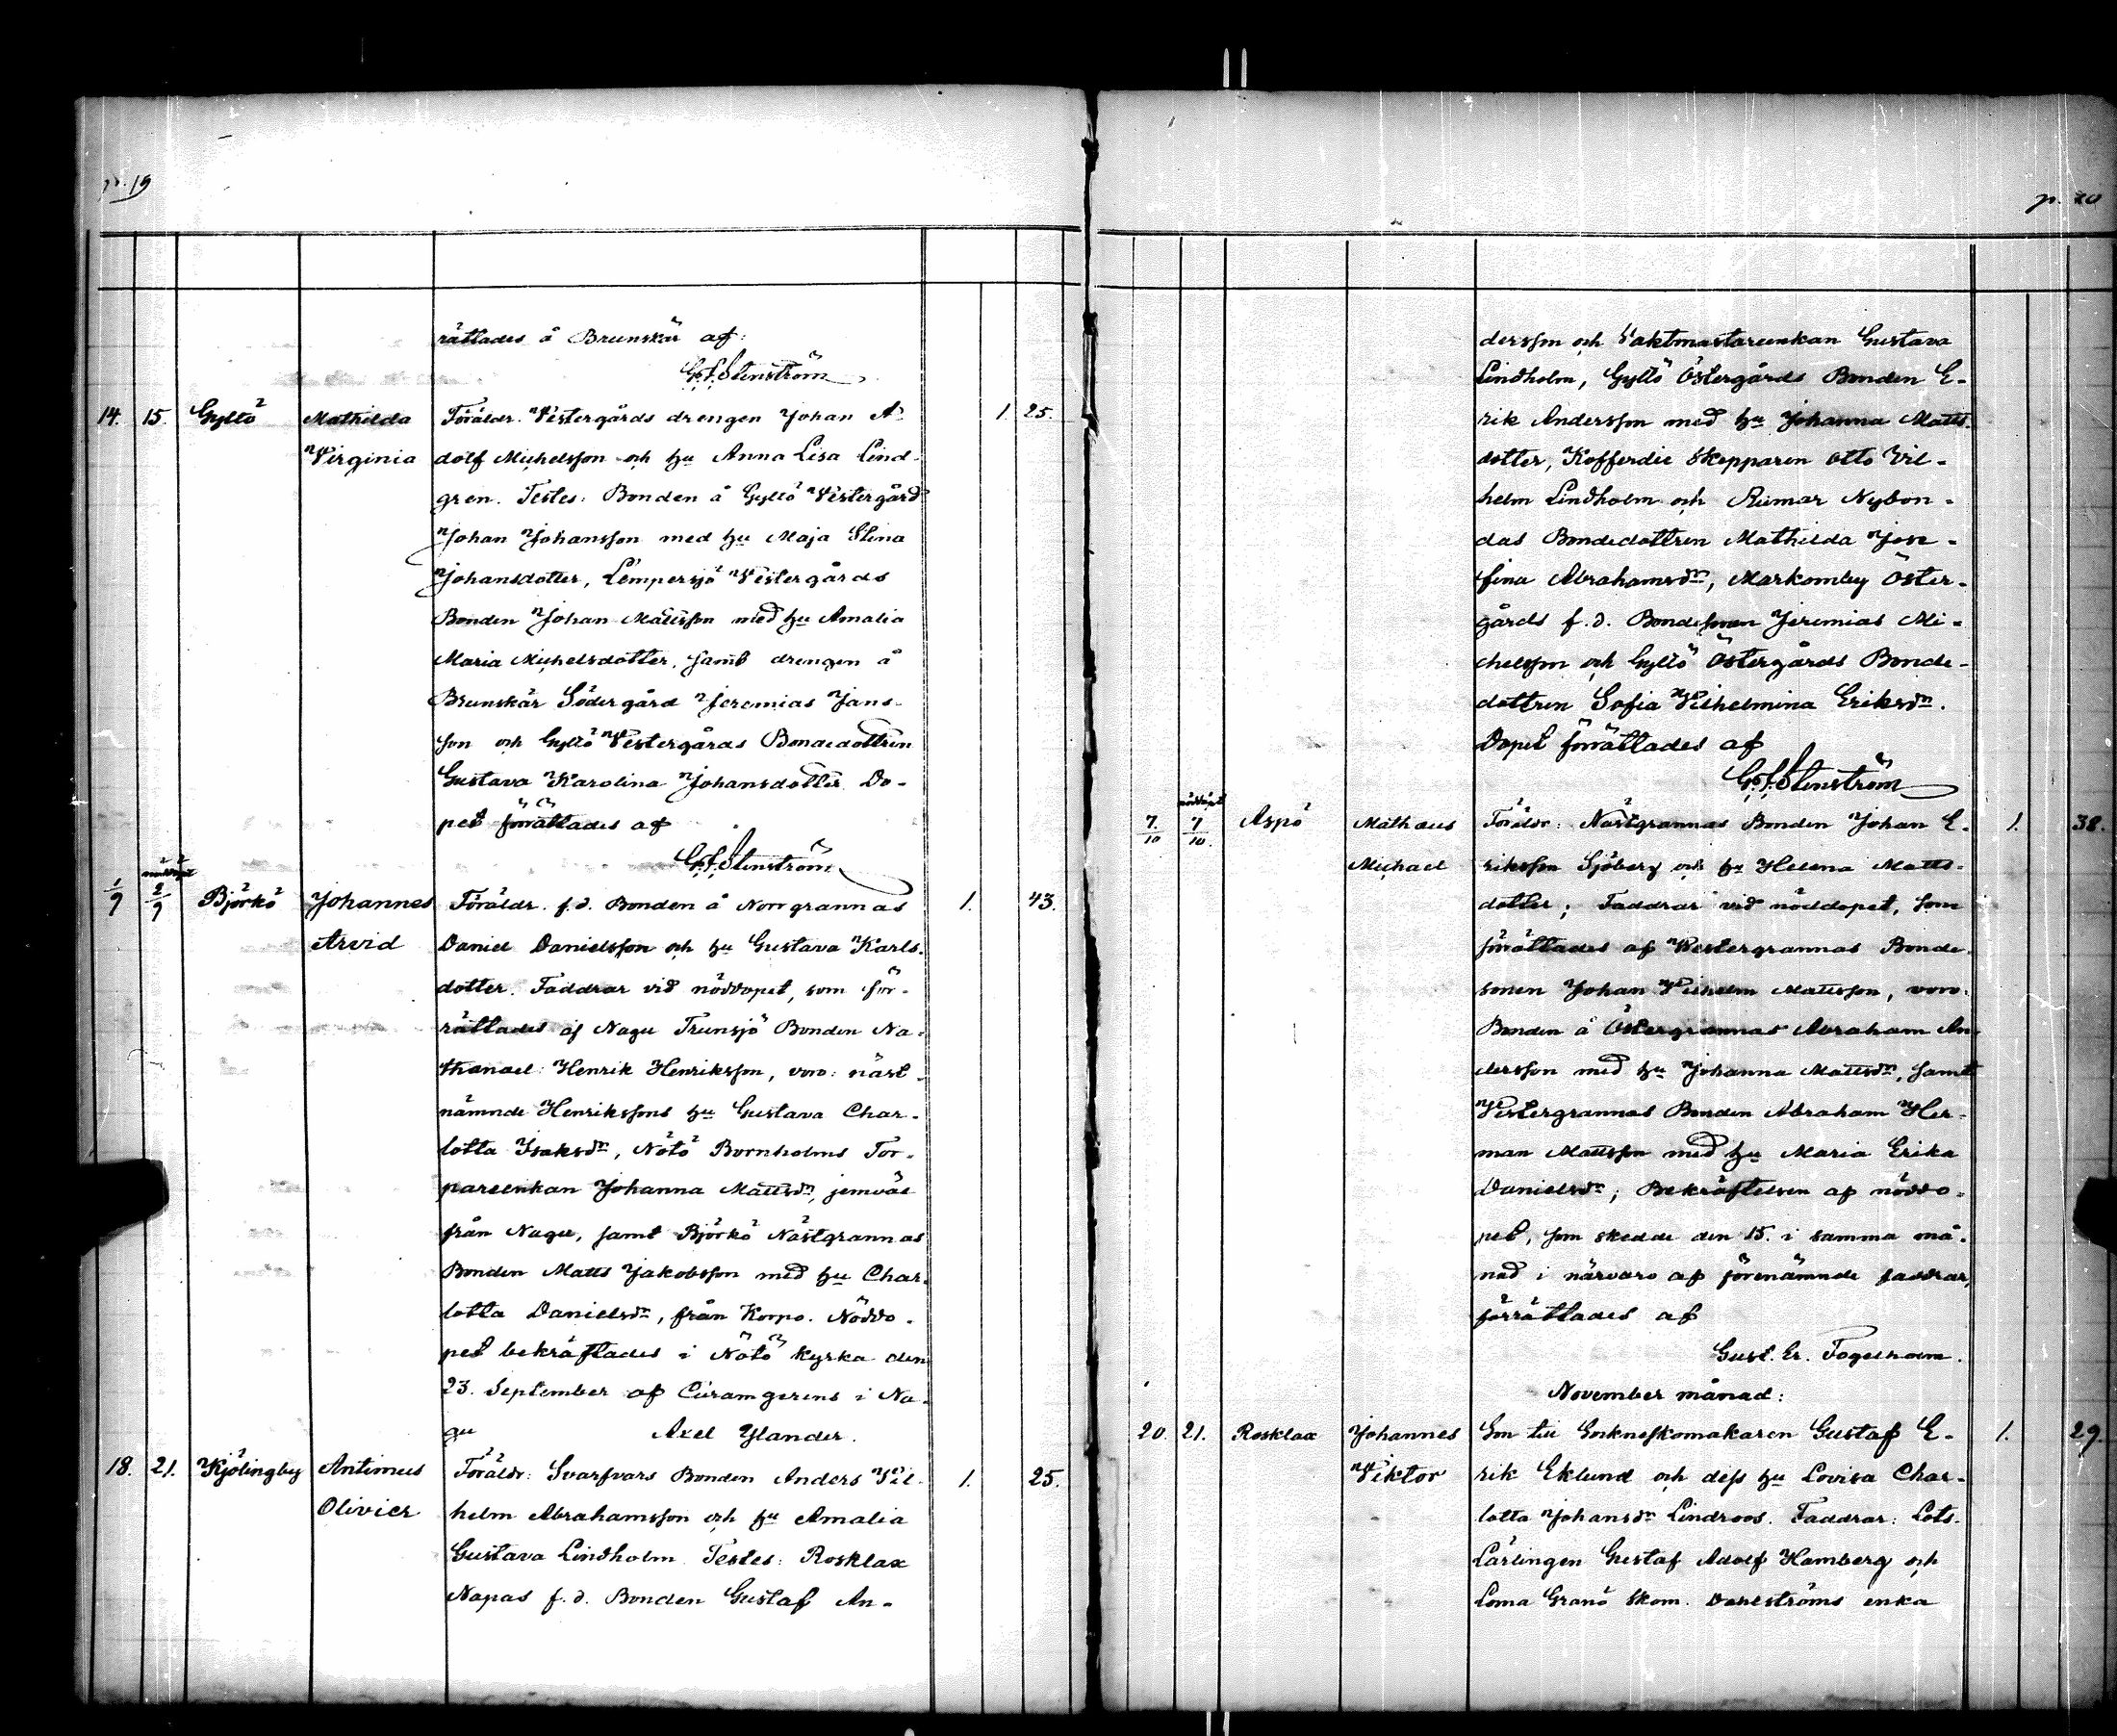 p. 19
rättades å Brunskär af:
G. F. Stenström
14. 15. Gyltö Mathilda Föräldr. Vestergårds drengen Johan A- 1. 25.
Virginia dolf Michelsson och hu Anna Lisa Lind-
gren. Testes: Bonden å Gyltö Vestergård
Johan Johansson med hu Maja Stina
Johansdotter, Lempersjö Vestergårds
Bonden Johan Mattsson med hu Amalia
Maria Michelsdotter, samt drengen å
Brunskär Södergård Jeremias Jans-
son och Gyltö Vestergårds Bondedottren
Gustava Karolina Johansdotter. Do-
pet förrättades af
G. F. Stenström
1/9 nöddöpt 2/9 Björkö Johannes Föräldr. f.d. Bonden å Norrgrannas 1. 43.
Arvid Daniel Danielsson och hu Gustava Karls-
dotter. Faddrar vid nöddopet, som för-
rättades af Nagu Trunsjö Bonden Na-
thanael Henrik Henriksson, voro: näst-
nämnde Henrikssons hu Gustava Char-
lotta Isaksdr, Nötö Bornholms Tor-
pareenkan Johanna Mattsdr, jemväl
från Nagu, samt Björkö Nästgrannas
Bonden Matts Jakobsson med hu Char-
lotta Danielsdr, från Korpo. Nöddo-
pet bekräftades i Nötö Kyrka den
23. September af Curamgerens i Na-
gu Axel Ylander.
18. 21. Kjölingby Antimus Föräldr: Svarfvars Bonden Anders Vil- 1. 25.
Olivier helm Abrahamsson och hu Amalia
Gustava Lindholm. Testes: Rosklax
Napas f.d. Bonden Gustaf An-
p. 20
dersson och Vaktmastareenkan Gustava
Lindholm, Gyltö Östergårds Bonden E-
rik Andersson med hu Johanna Matts-
dotter, Kofferdie Skepparen Otto Vil-
helm Lindholm och Rumar Nybon-
das Bondedottren Mathilda Jose-
fina Abrahamsdr, Markomby Öster-
gårds f.d. Bondesonen Jeremias Mi-
chelsson och Gyltö Östergårds Bonde-
dottren Sofia Vilhelmina Eriksdr.
Dopet förrättades af
G. F. Stenström
7/10 nöddöpt 7/10. Aspö Mathaus Föräldr: Nästgrannas Bonden Johan E- 1. 38.
Michael riksson Sjöberg och hu Helena Matts-
dotter; Faddrar vid nöddopet, som
förrättades af Westergrannas Bonde-
sonen Johan Vilhelm Mattsson, voro:
Bonden å Östergrannas Abraham An-
dersson med hu Johanna Mattsdr, samt
Vestergrannas Bonden Abraham Her-
man Mattsson med hu Maria Erika
Danielsdr; Bekräftelsen af nöddo-
pet, som skedde den 15. i samma må-
nad i närvaro af förenämnde faddrar,
förrättades af
Gust. Er. Fogelholm.
November månad:
20. 21. Rosklax Johannes Son till Socknefkomakaren Gustaf E- 1. 29.
Viktor rik Eklund och dess hu Lovisa Char-
lotta Johansdr Lindroos. Faddrar: Lots-
Lärlingen Gustaf Adolf Hamberg och
Loma Granö Skom. Dahlströms enka